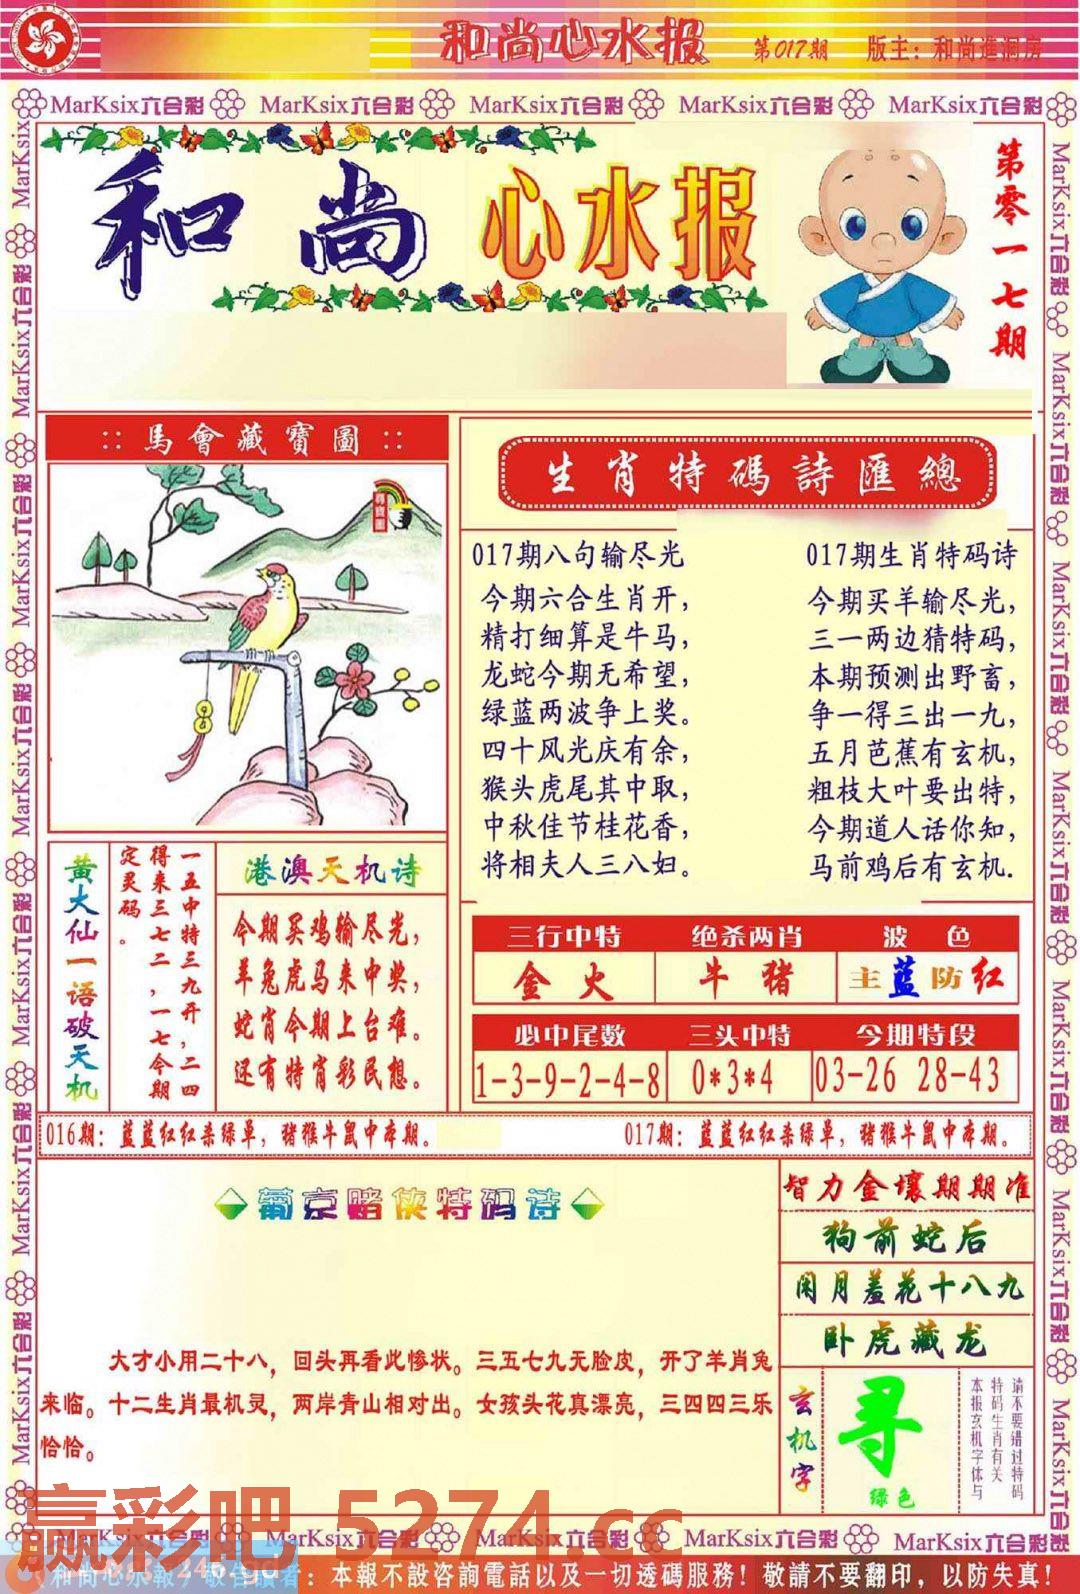 和尚心水报 第017期 版主：和尚進洞房
MarKsix六合彩 MarKsix六合彩 MarKsix六合彩 MarKsix六合彩 MarKsix六合彩
和尚心水报
第零一七期
::馬會藏寶圖::
尋寶圖
生肖特碼詩匯總
017期八句输尽光
今期六合生肖开，
精打细算是牛马，
龙蛇今期无希望，
绿蓝两波争上奖。
四十风光庆有余，
猴头虎尾其中取，
中秋佳节桂花香，
将相夫人三八妇。
017期生肖特码诗
今期买羊输尽光，
三一两边猜特码，
本期预测出野畜，
争一得三出一九，
五月芭蕉有玄机，
粗枝大叶要出特，
今期道人话你知，
马前鸡后有玄机.
黄大仙一语破天机
一五中特三九开，二四
得来三七二，一七今期
定灵码。
港澳天机诗
今期买鸡输尽光，
羊兔虎马来中奖，
蛇肖今期上台难。
还有特肖彩民想。
三行中特 绝杀两肖 波色
金火 牛猪 主蓝防红
必中尾数 三头中特 今期特段
1-3-9-2-4-8 0*3*4 03-26 28-43
016期：蓝蓝红红杀绿单，猪猴牛鼠中本期。 017期：蓝蓝红红杀绿单，猪猴牛鼠中本期。
葡京赌侠特码诗
大才小用二十八，回头再看此惨状。三五七九无脸皮，开了羊肖兔
来临。十二生肖最机灵，两岸青山相对出。女孩头花真漂亮，三四四三乐
恰恰。
智力金壤期期准
狗前蛇后
闭月羞花十八九
卧虎藏龙
玄机字
寻
绿色
请不要错过特码
特码生肖有关
本报玄机字体与
MarKsix六合彩 MarKsix六合彩 MarKsix六合彩 MarKsix六合彩 MarKsix六合彩
赢彩吧 5274.cc
246.gd
和尚心水報 敬告讀者：本報不設咨詢電話以及一切透碼服務！敬請不要翻印，以防失真！